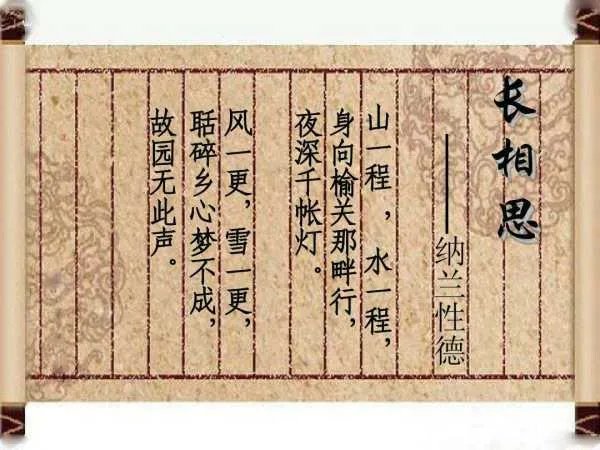 长相思
——纳兰性德
山一程，水一程，
身向榆关那畔行，
夜深千帐灯。
风一更，雪一更，
聒碎乡心梦不成，
故园无此声。